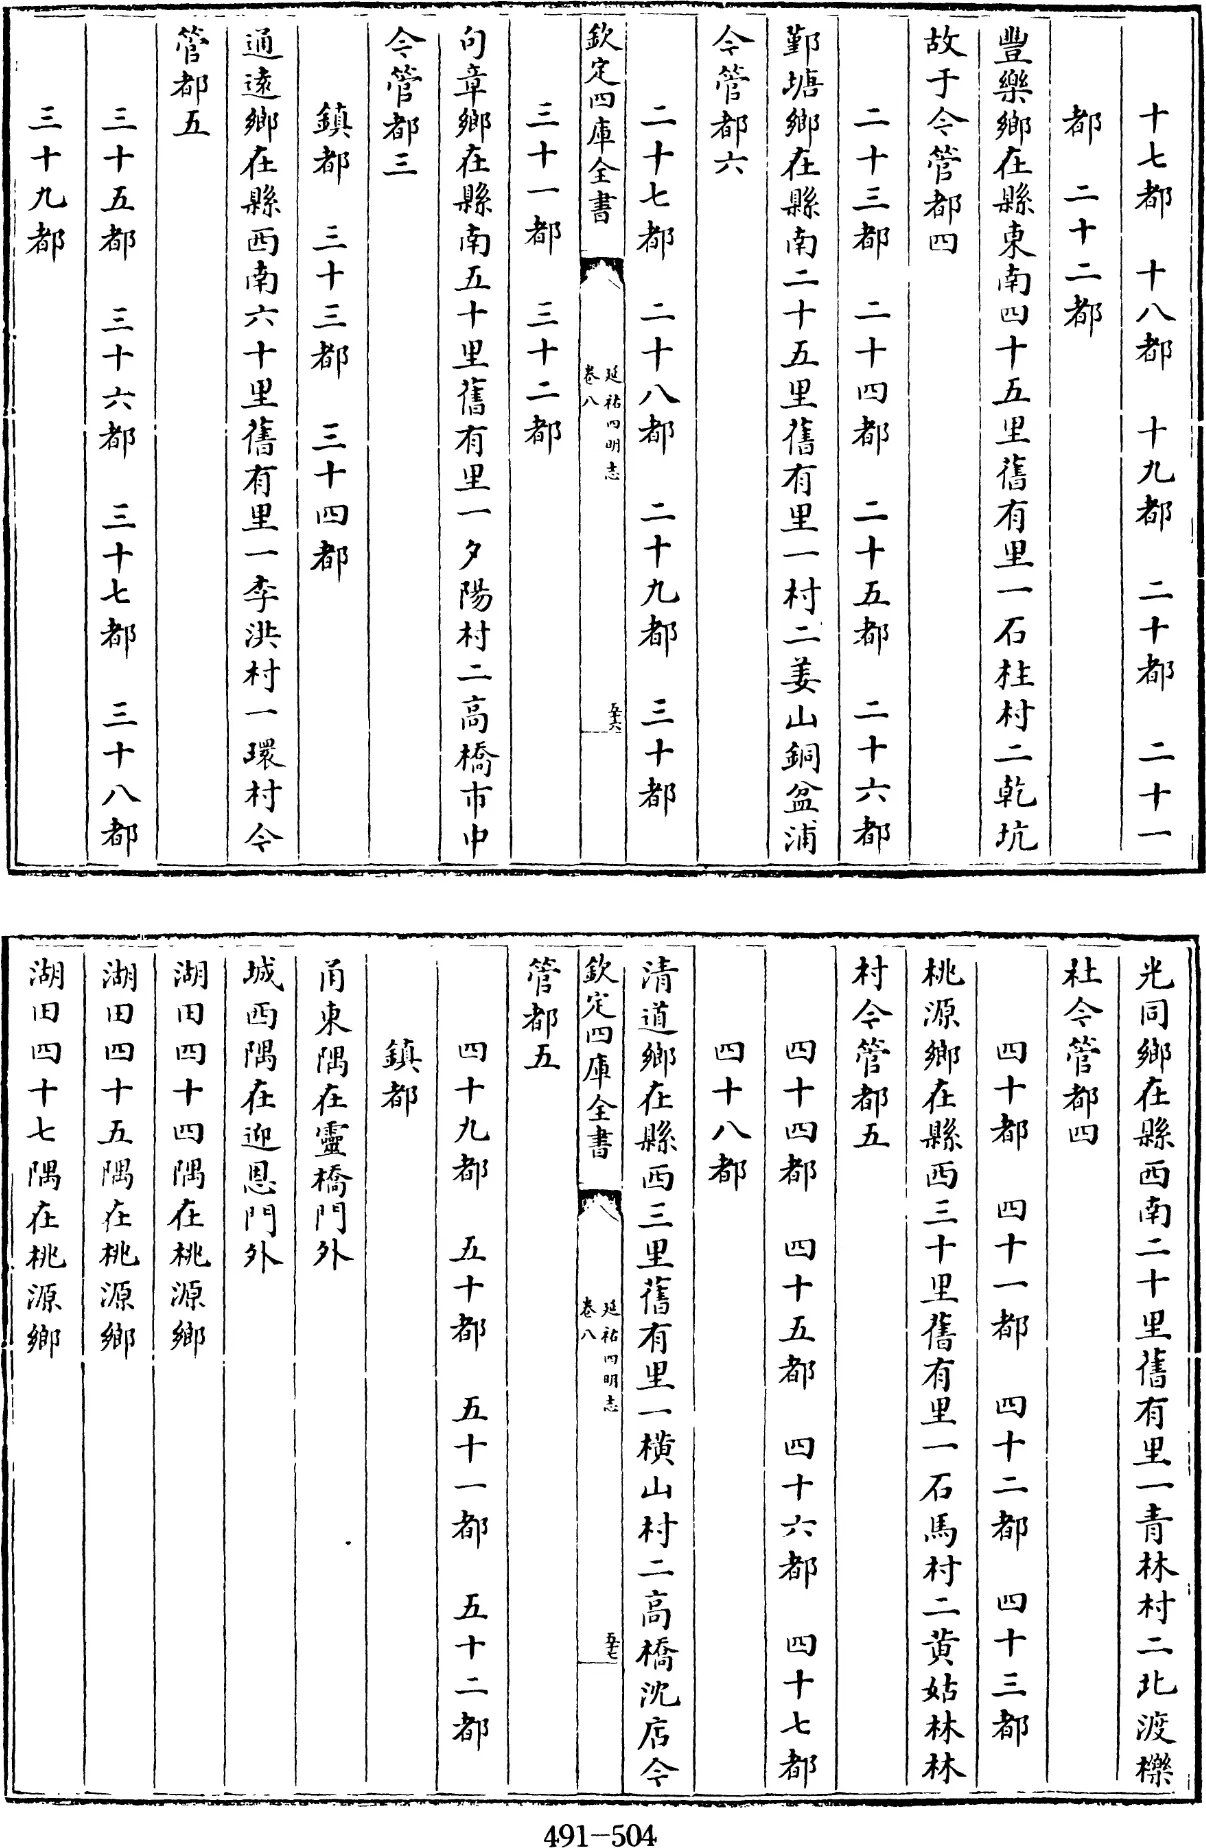 十七都　十八都　十九都　二十都　二十一
都　二十二都
豐樂鄉在縣東南四十五里舊有里一石柱村二乾坑
故于今管都四
二十三都　二十四都　二十五都　二十六都
鄞塘鄉在縣南二十五里舊有里一村二姜山銅盆浦
今管都六
二十七都　二十八都　二十九都　三十都
欽定四庫全書
延祐四明志
卷八
五十六
三十一都　三十二都
句章鄉在縣南五十里舊有里一夕陽村二高橋市中
今管都三
鎮都　三十三都　三十四都
通遠鄉在縣西南六十里舊有里一李洪村一環村今
管都五
三十五都　三十六都　三十七都　三十八都
三十九都
光同鄉在縣西南二十里舊有里一青林村二北渡櫟
社今管都四
四十都　四十一都　四十二都　四十三都
桃源鄉在縣西三十里舊有里一石馬村二黃姑林林
村今管都五
四十四都　四十五都　四十六都　四十七都
四十八都
清道鄉在縣西三里舊有里一橫山村二高橋沈店今
欽定四庫全書
延祐四明志
卷八
五十七
管都五
四十九都　五十都　五十一都　五十二都
鎮都
甬東隅在靈橋門外
城西隅在迎恩門外
湖田四十四隅在桃源鄉
湖田四十五隅在桃源鄉
湖田四十七隅在桃源鄉
491-504